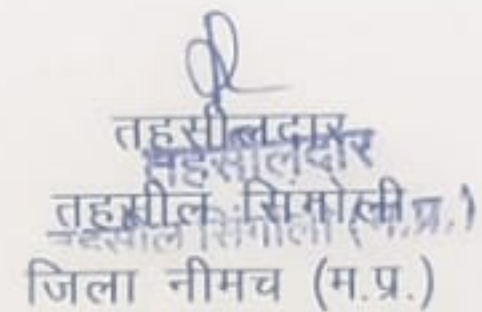 तहसीलदार
तहसीलदार
तहसील सिंगोली
तहसील सिंगोली (म.प्र.)
जिला नीमच (म.प्र.)